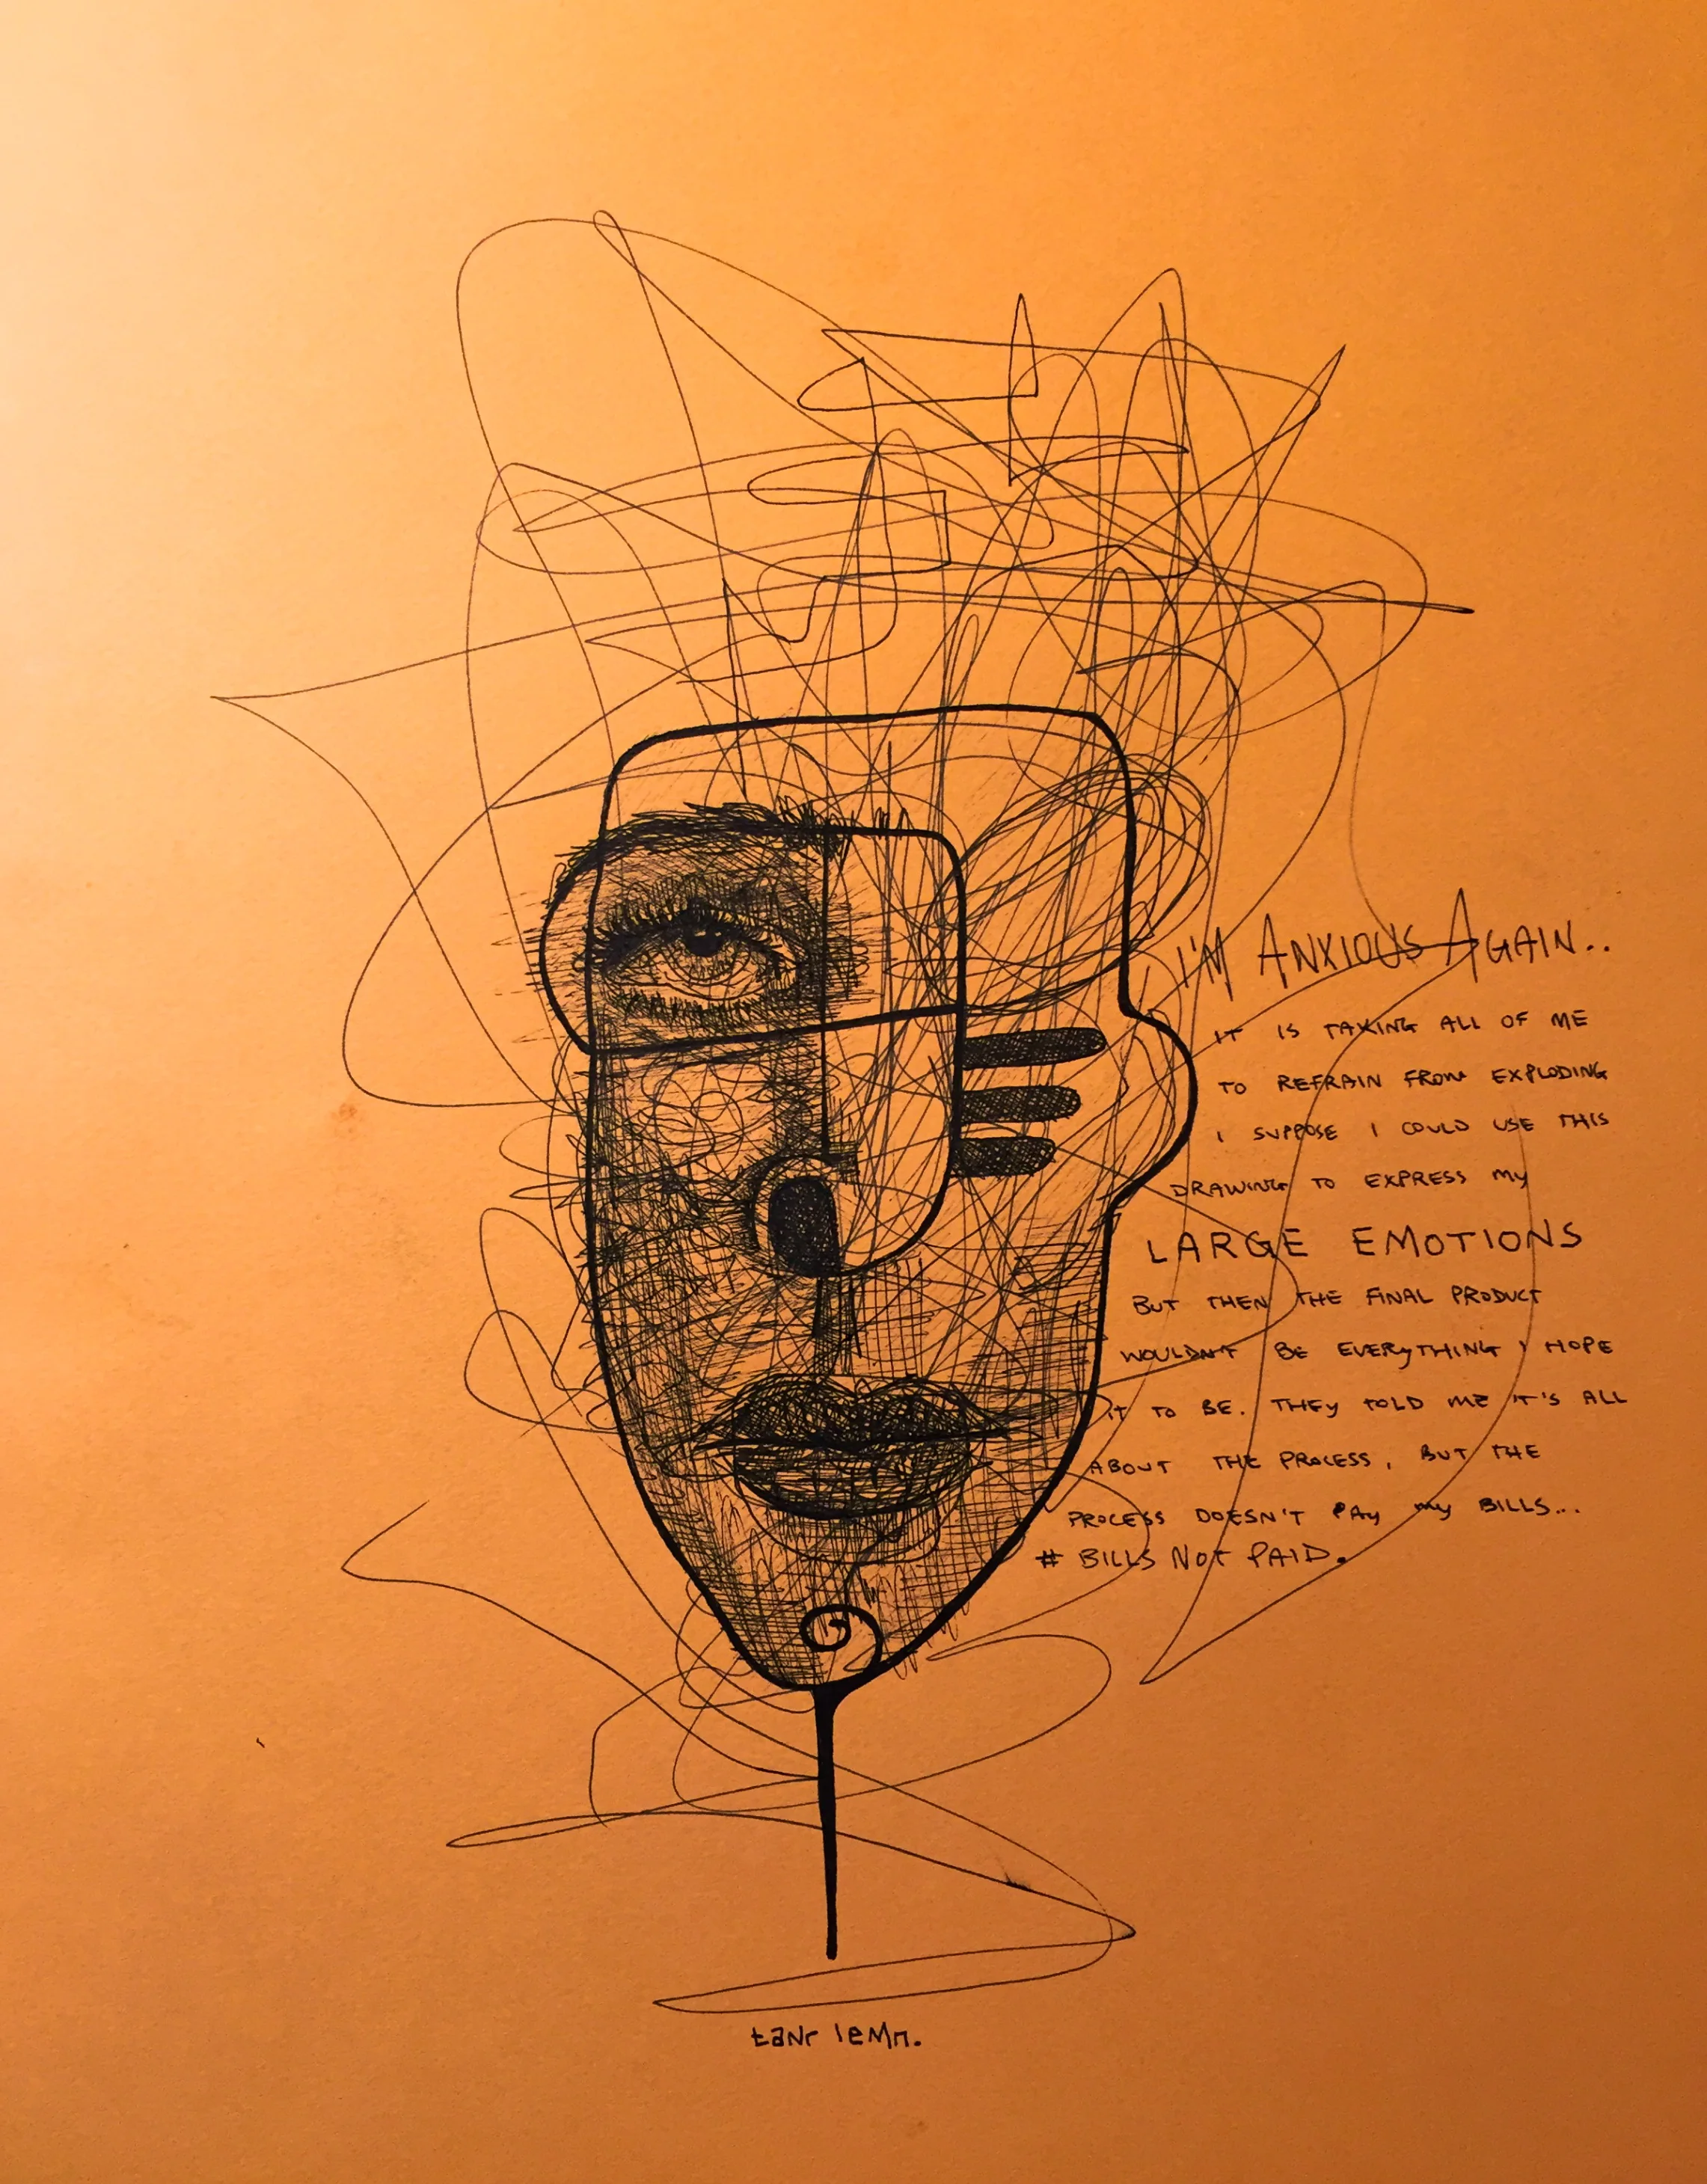 I'M ANXIOUS AGAIN..
IT IS TAKING ALL OF ME
TO REFRAIN FROM EXPLODING
I SUPPOSE I COULD USE THIS
DRAWING TO EXPRESS My
LARGE EMOTIONS
BUT THEN THE FINAL PRODUCT
WOULDN'T BE EVERyTHING I HOPE
IT TO BE. THEy TOLD ME IT'S ALL
ABOUT THE PROCESS, BUT THE
PROCESS DOESN'T PAy my BILLS...
# BILLS NOT PAID.